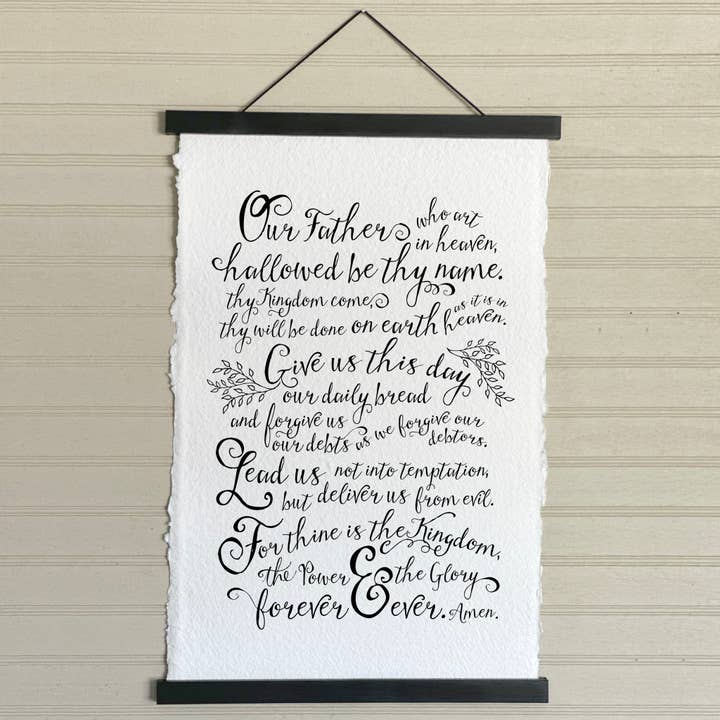 Our Father who art
in heaven,
hallowed be thy name.
thy Kingdom come,
thy will be done on earth as it is in
heaven.
Give us this day
our daily bread
and forgive us
our debts as we forgive our
debtors.
Lead us not into temptation,
but deliver us from evil.
For thine is the Kingdom,
the Power & the Glory
forever ever. Amen.